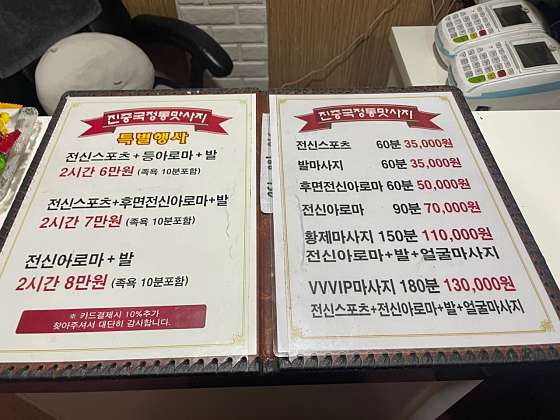 진중국정통맛사지
특별행사
전신스포츠+등아로마+발
2시간 6만원 (족욕 10분포함)
전신스포츠+후면전신아로마+발
2시간 7만원 (족욕 10분포함)
전신아로마+발
2시간 8만원 (족욕 10분포함)
※ 카드결제시 10%추가
찾아주셔서 대단히 감사합니다.
진중국정통맛사지
전신스포츠 60분 35,000원
발마사지 60분 35,000원
후면전신아로마 60분 50,000원
전신아로마 90분 70,000원
황제마사지 150분 110,000원
전신아로마+발+얼굴마사지
VVVIP마사지 180분 130,000원
전신스포츠+전신아로마+발+얼굴마사지